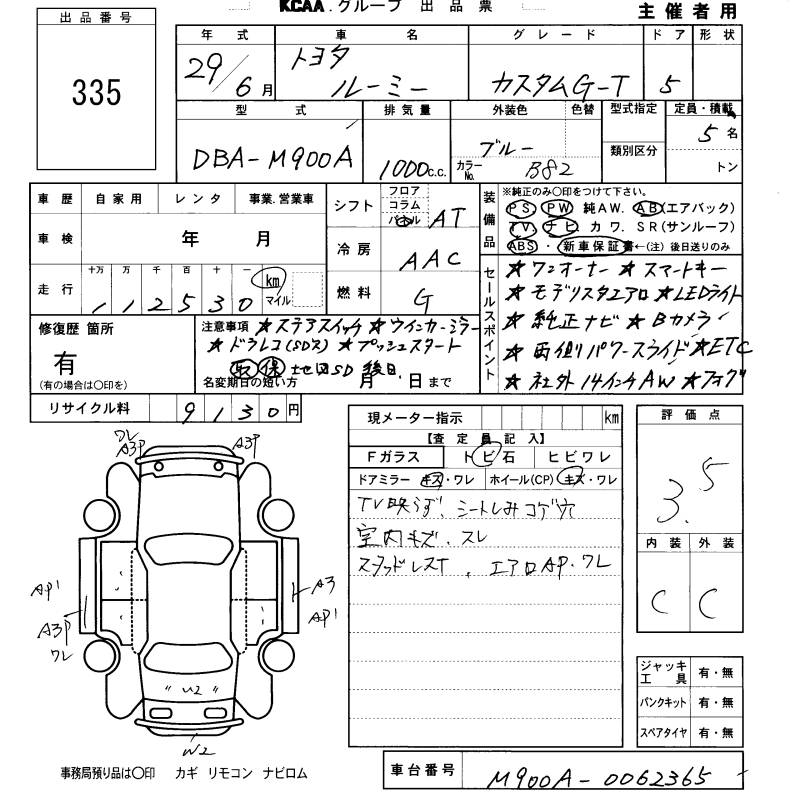 KCAA.グループ 出品票 主催者用
出品番号
335
年式 車名 グレード ドア 形状
29/6月 トヨタ
ルーミー カスタムG-T 5
型式 排気量 外装色 色替 型式指定 定員・積載
DBA-M900A 1000c.c. ブルー 5名
カラーNo. B82 類別区分 トン
車歴 自家用 レンタ 事業.営業車
車検 年 月
走行 十万 万 千 百 十 一 km マイル
112530
シフト フロア コラム パネル AT
冷房 AAC
燃料 G
装備品 ※純正のみ〇印をつけて下さい。
PS PW 純AW. AB(エアバック)
TV. ナビ カワ. SR(サンルーフ)
ABS ・ 新車保証書←(注)後日送りのみ
セールスポイント
★ワンオーナー ★スマートキー
★モデリスタエアロ ★LEDライト
★純正ナビ ★Bカメラ
★両側パワースライド★ETC
★社外14インチAW ★フォグ
修復歴 箇所
有
(有の場合は〇印を)
注意事項 ★ステアスイッチ ★ウインカーミラー
★ドラレコ(SD欠) ★プッシュスタート
取 保 地図SD 後日
名変期日の短い方 月 日まで
リサイクル料 9130円
現メーター指示 km
【査定員記入】
Fガラス トビ石 ヒビワレ
ドアミラー キズ・ワレ ホイール(CP) キズ・ワレ
TV映らず、シートしみコゲ穴
室内キズ、スレ
スタッドレスT、エアロAP.ワレ
評価点
3.5
内装 外装
C C
ワレ
A3P A3P
AP1
A3P
ワレ
A3
AP1
〃 U2 〃
W2
ジャッキ
工具 有・無
パンクキット 有・無
スペアタイヤ 有・無
事務局預り品は〇印 カギ リモコン ナビロム
車台番号 M900A-0062365